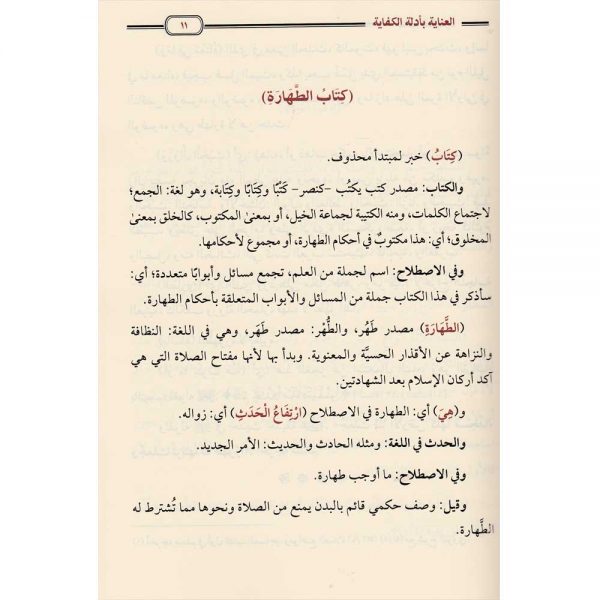 العناية بأدلة الكفاية
١١
(كِتَابُ الطَّهَارَةِ)
(كِتَابُ) خبر لمبتدأ محذوف.
والكتاب: مصدر كتب يكتُب -كنصر- كَتْبًا وكِتَابًا وكِتَابة، وهو لغة: الجمع؛
لاجتماع الكلمات، ومنه الكتيبة لجماعة الخيل، أو بمعنى المكتوب، كالخلق بمعنى
المخلوق؛ أي: هذا مكتوبٌ في أحكام الطهارة، أو مجموع لأحكامها.
وفي الاصطلاح: اسم لجملة من العلم، تجمع مسائل وأبوابًا متعددة؛ أي:
سأذكر في هذا الكتاب جملة من المسائل والأبواب المتعلقة بأحكام الطهارة.
(الطَّهَارَةِ) مصدر طَهُر، والطُّهْر: مصدر طَهَر، وهي في اللغة: النظافة
والنزاهة عن الأقذار الحسيَّة والمعنوية. وبدأ بها لأنها مفتاح الصلاة التي هي
آكد أركان الإسلام بعد الشهادتين.
و(هِيَ) أي: الطهارة في الاصطلاح (ارْتِفَاعُ الْحَدَثِ) أي: زواله.
والحدث في اللغة: ومثله الحادث والحديث: الأمر الجديد.
وفي الاصطلاح: ما أوجب طهارة.
وقيل: وصف حكمي قائم بالبدن يمنع من الصلاة ونحوها مما تُشترط له
الطَّهارة.